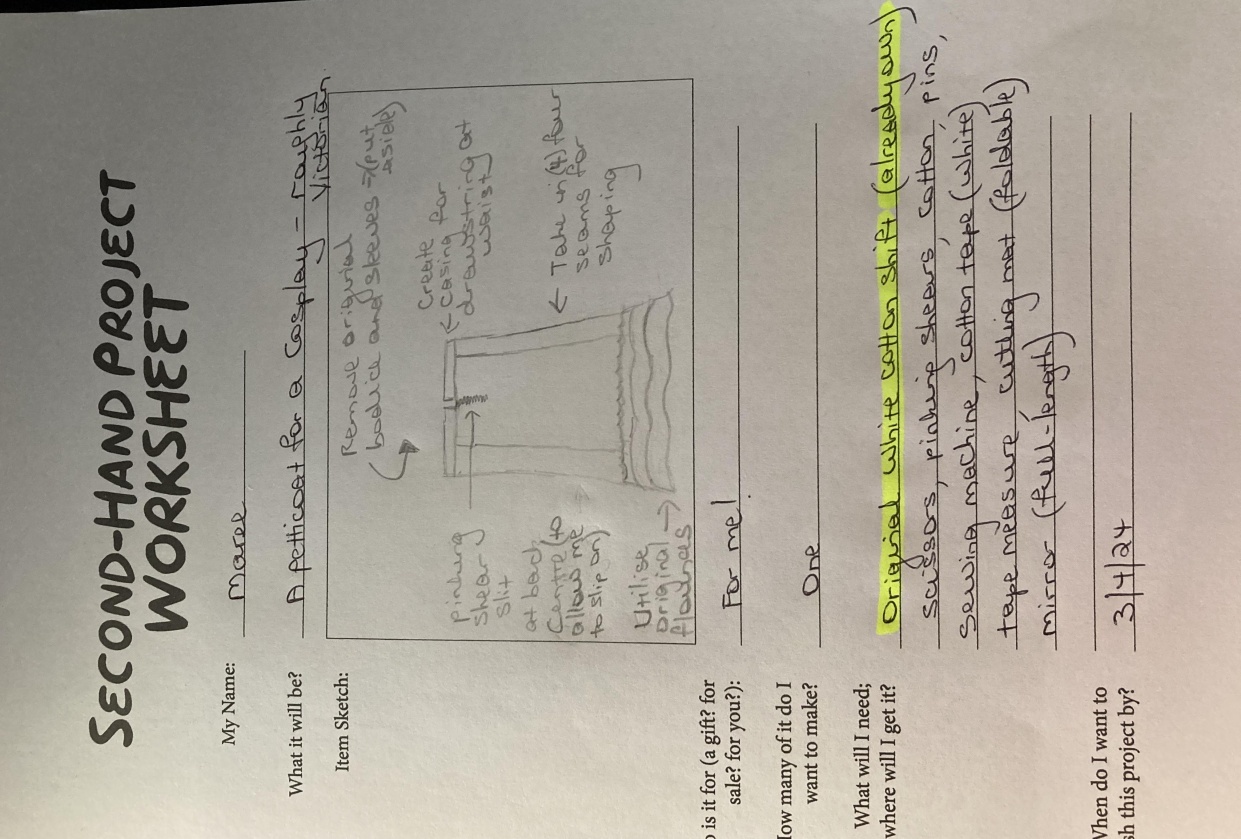 SECOND-HAND PROJECT
WORKSHEET
My Name: Maree
What it will be? A petticoat for a cosplay - roughly
Victorian.
Item Sketch:
Remove original
bodice and sleeves → (put
aside)
Create
← casing for
drawstring at
waist
← Take in (4) four
seams for
shaping
Pinking
shear
slit
at back
centre (to
allow me
to slip on)
Utilise
original →
flounces
o is it for (a gift? for
sale? for you?):
For me!
How many of it do I
want to make?
One
What will I need;
where will I get it?
Original white cotton shift (already own)
scissors, pinking shears, cotton, pins,
sewing machine, cotton tape (white)
tape measure, cutting mat (foldable)
mirror (full-length)
When do I want to
sh this project by?
3/4/24